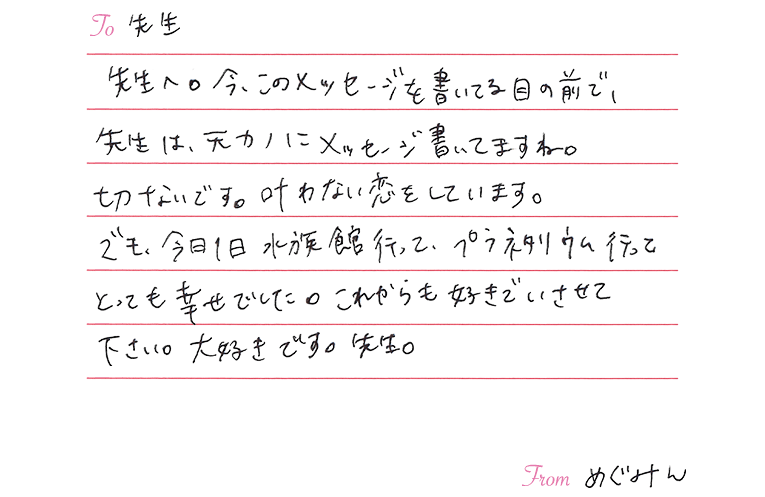 To 先生
先生へ。今、このメッセージを書いてる目の前で、
先生は、元カノにメッセージ書いてますね。
切ないです。叶わない恋をしています。
でも、今日1日水族館行って、プラネタリウム行って
とっても幸せでした。これからも好きでいさせて
下さい。大好きです。先生。
From めぐみん